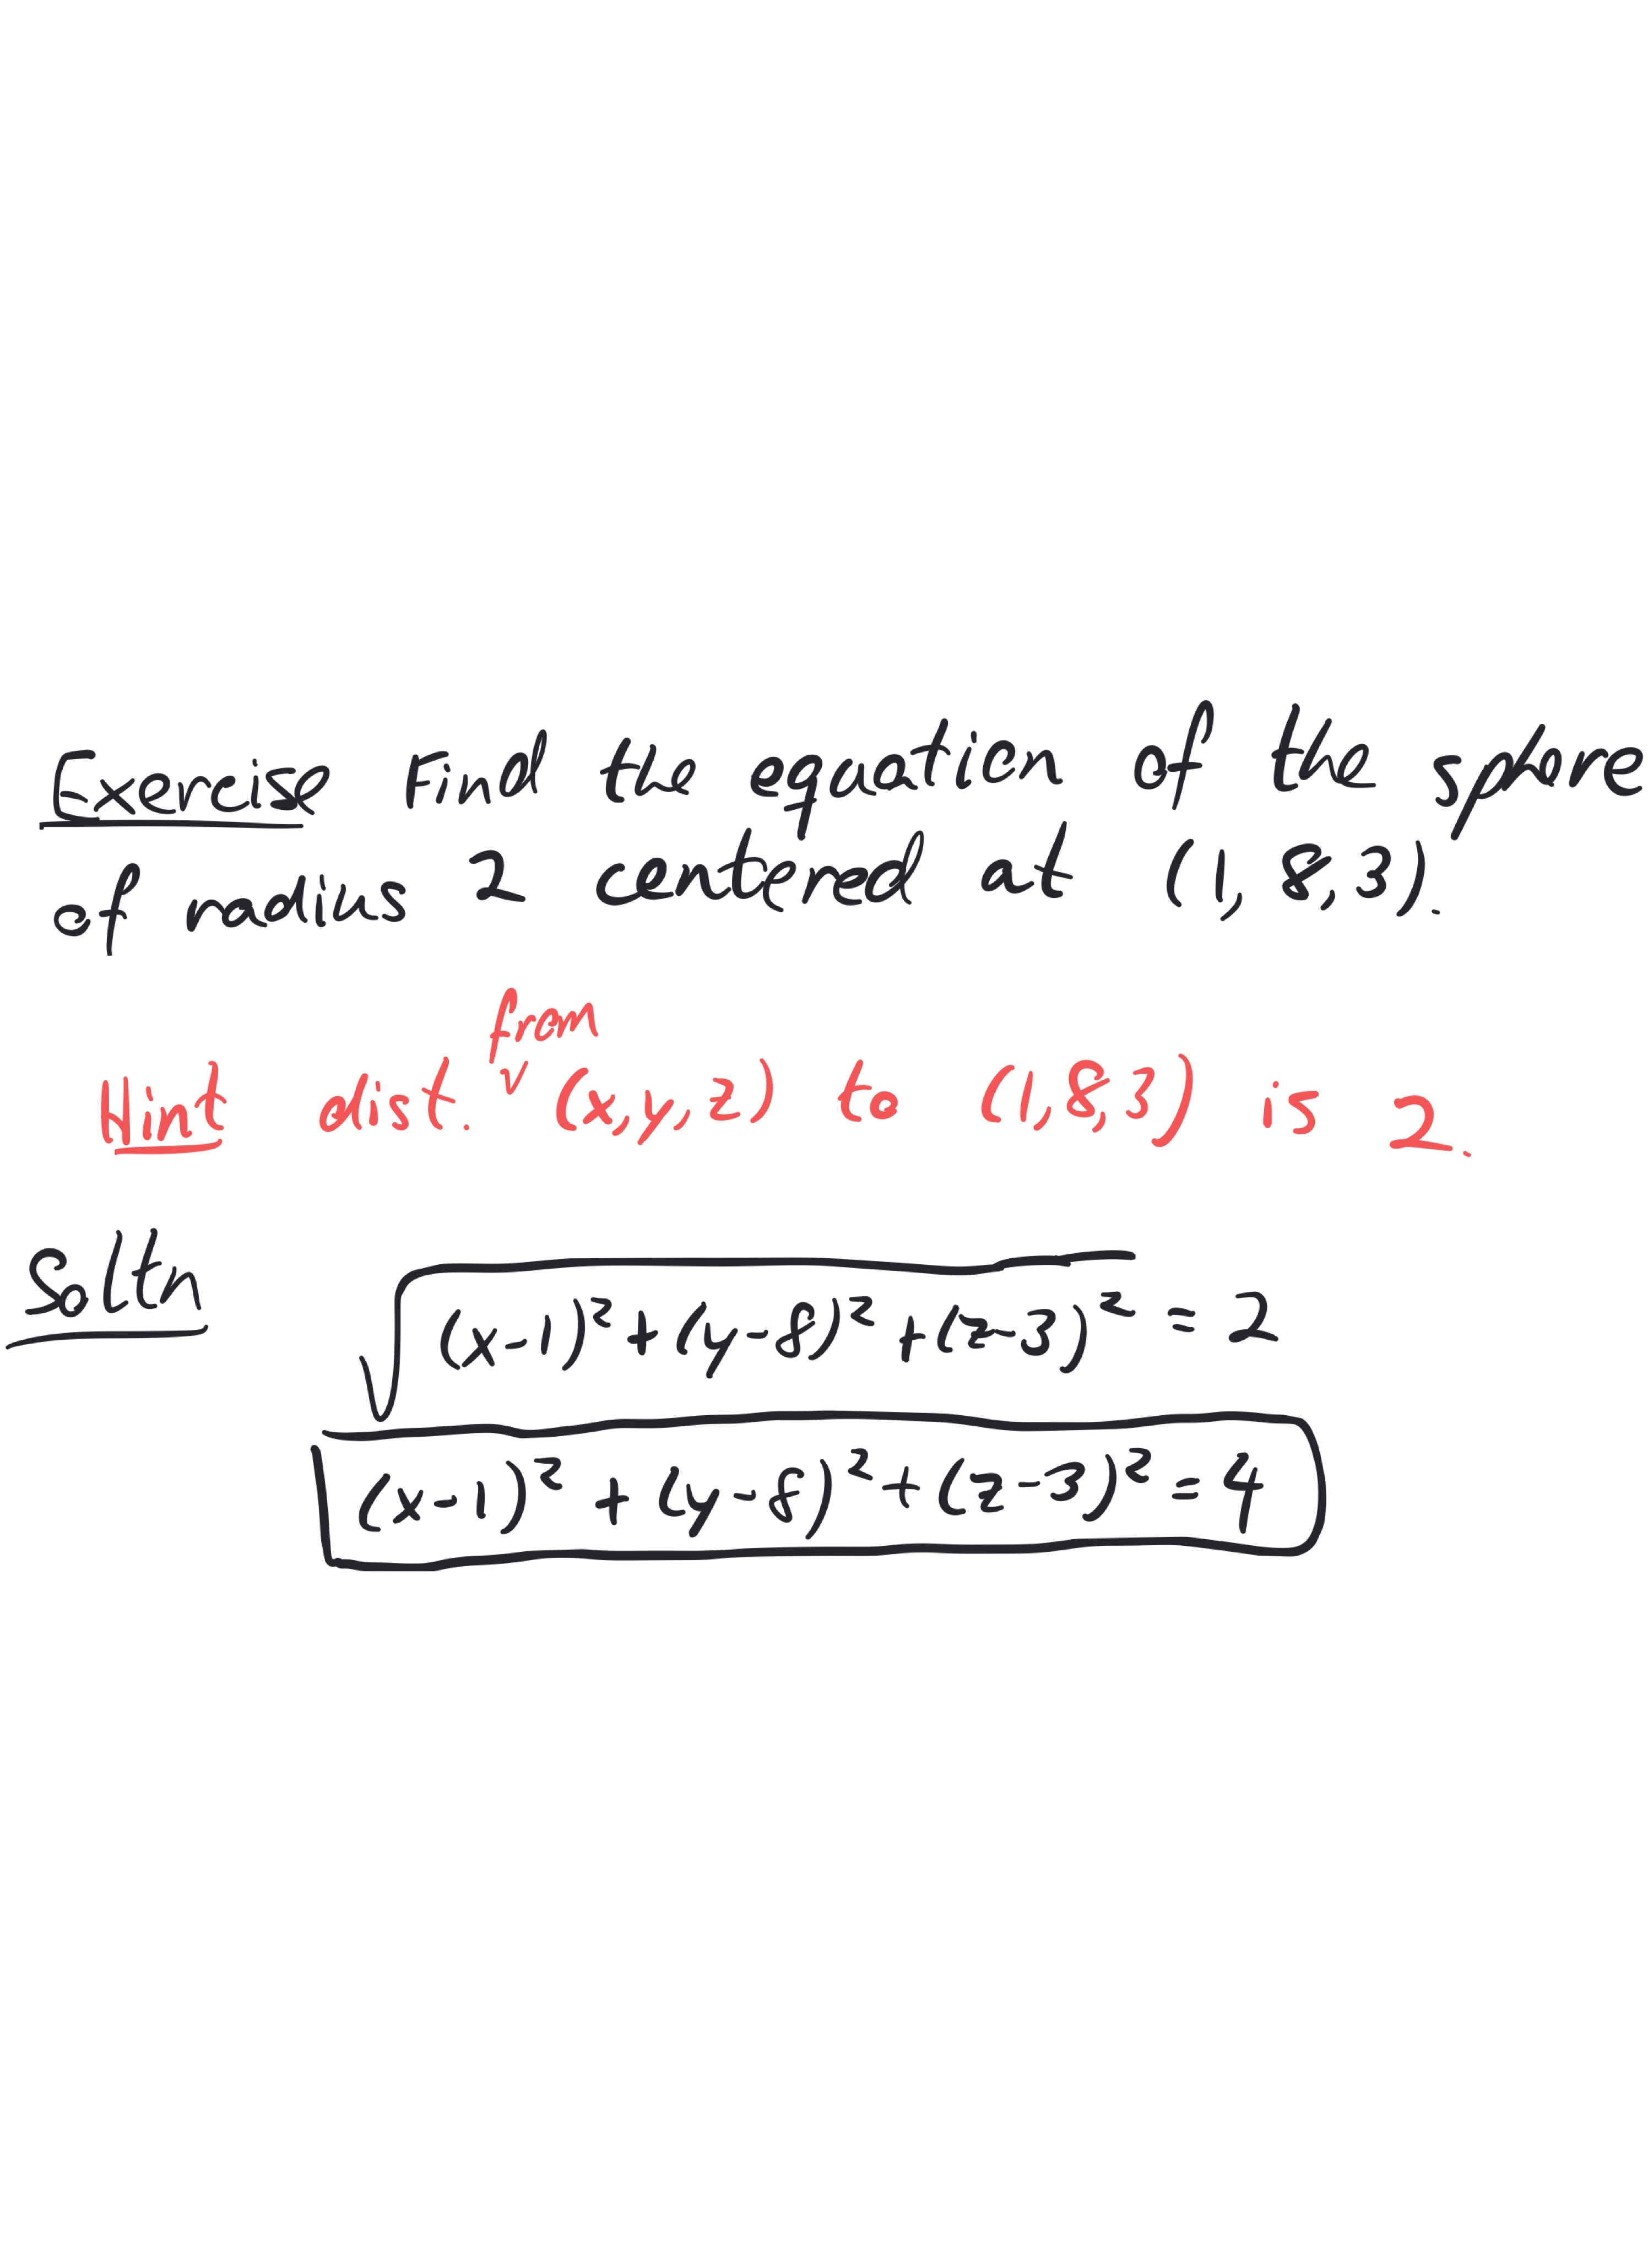 Exercise Find the equation of the sphere
of radius 2 centered at (1, 8, 3).
from
Hint dist. ∨ (x,y,z) to (1,8,3) is 2.
Soltn √((x-1)²+(y-8)²+(z-3)²) = 2
(x-1)² + (y-8)² + (z-3)² = 4